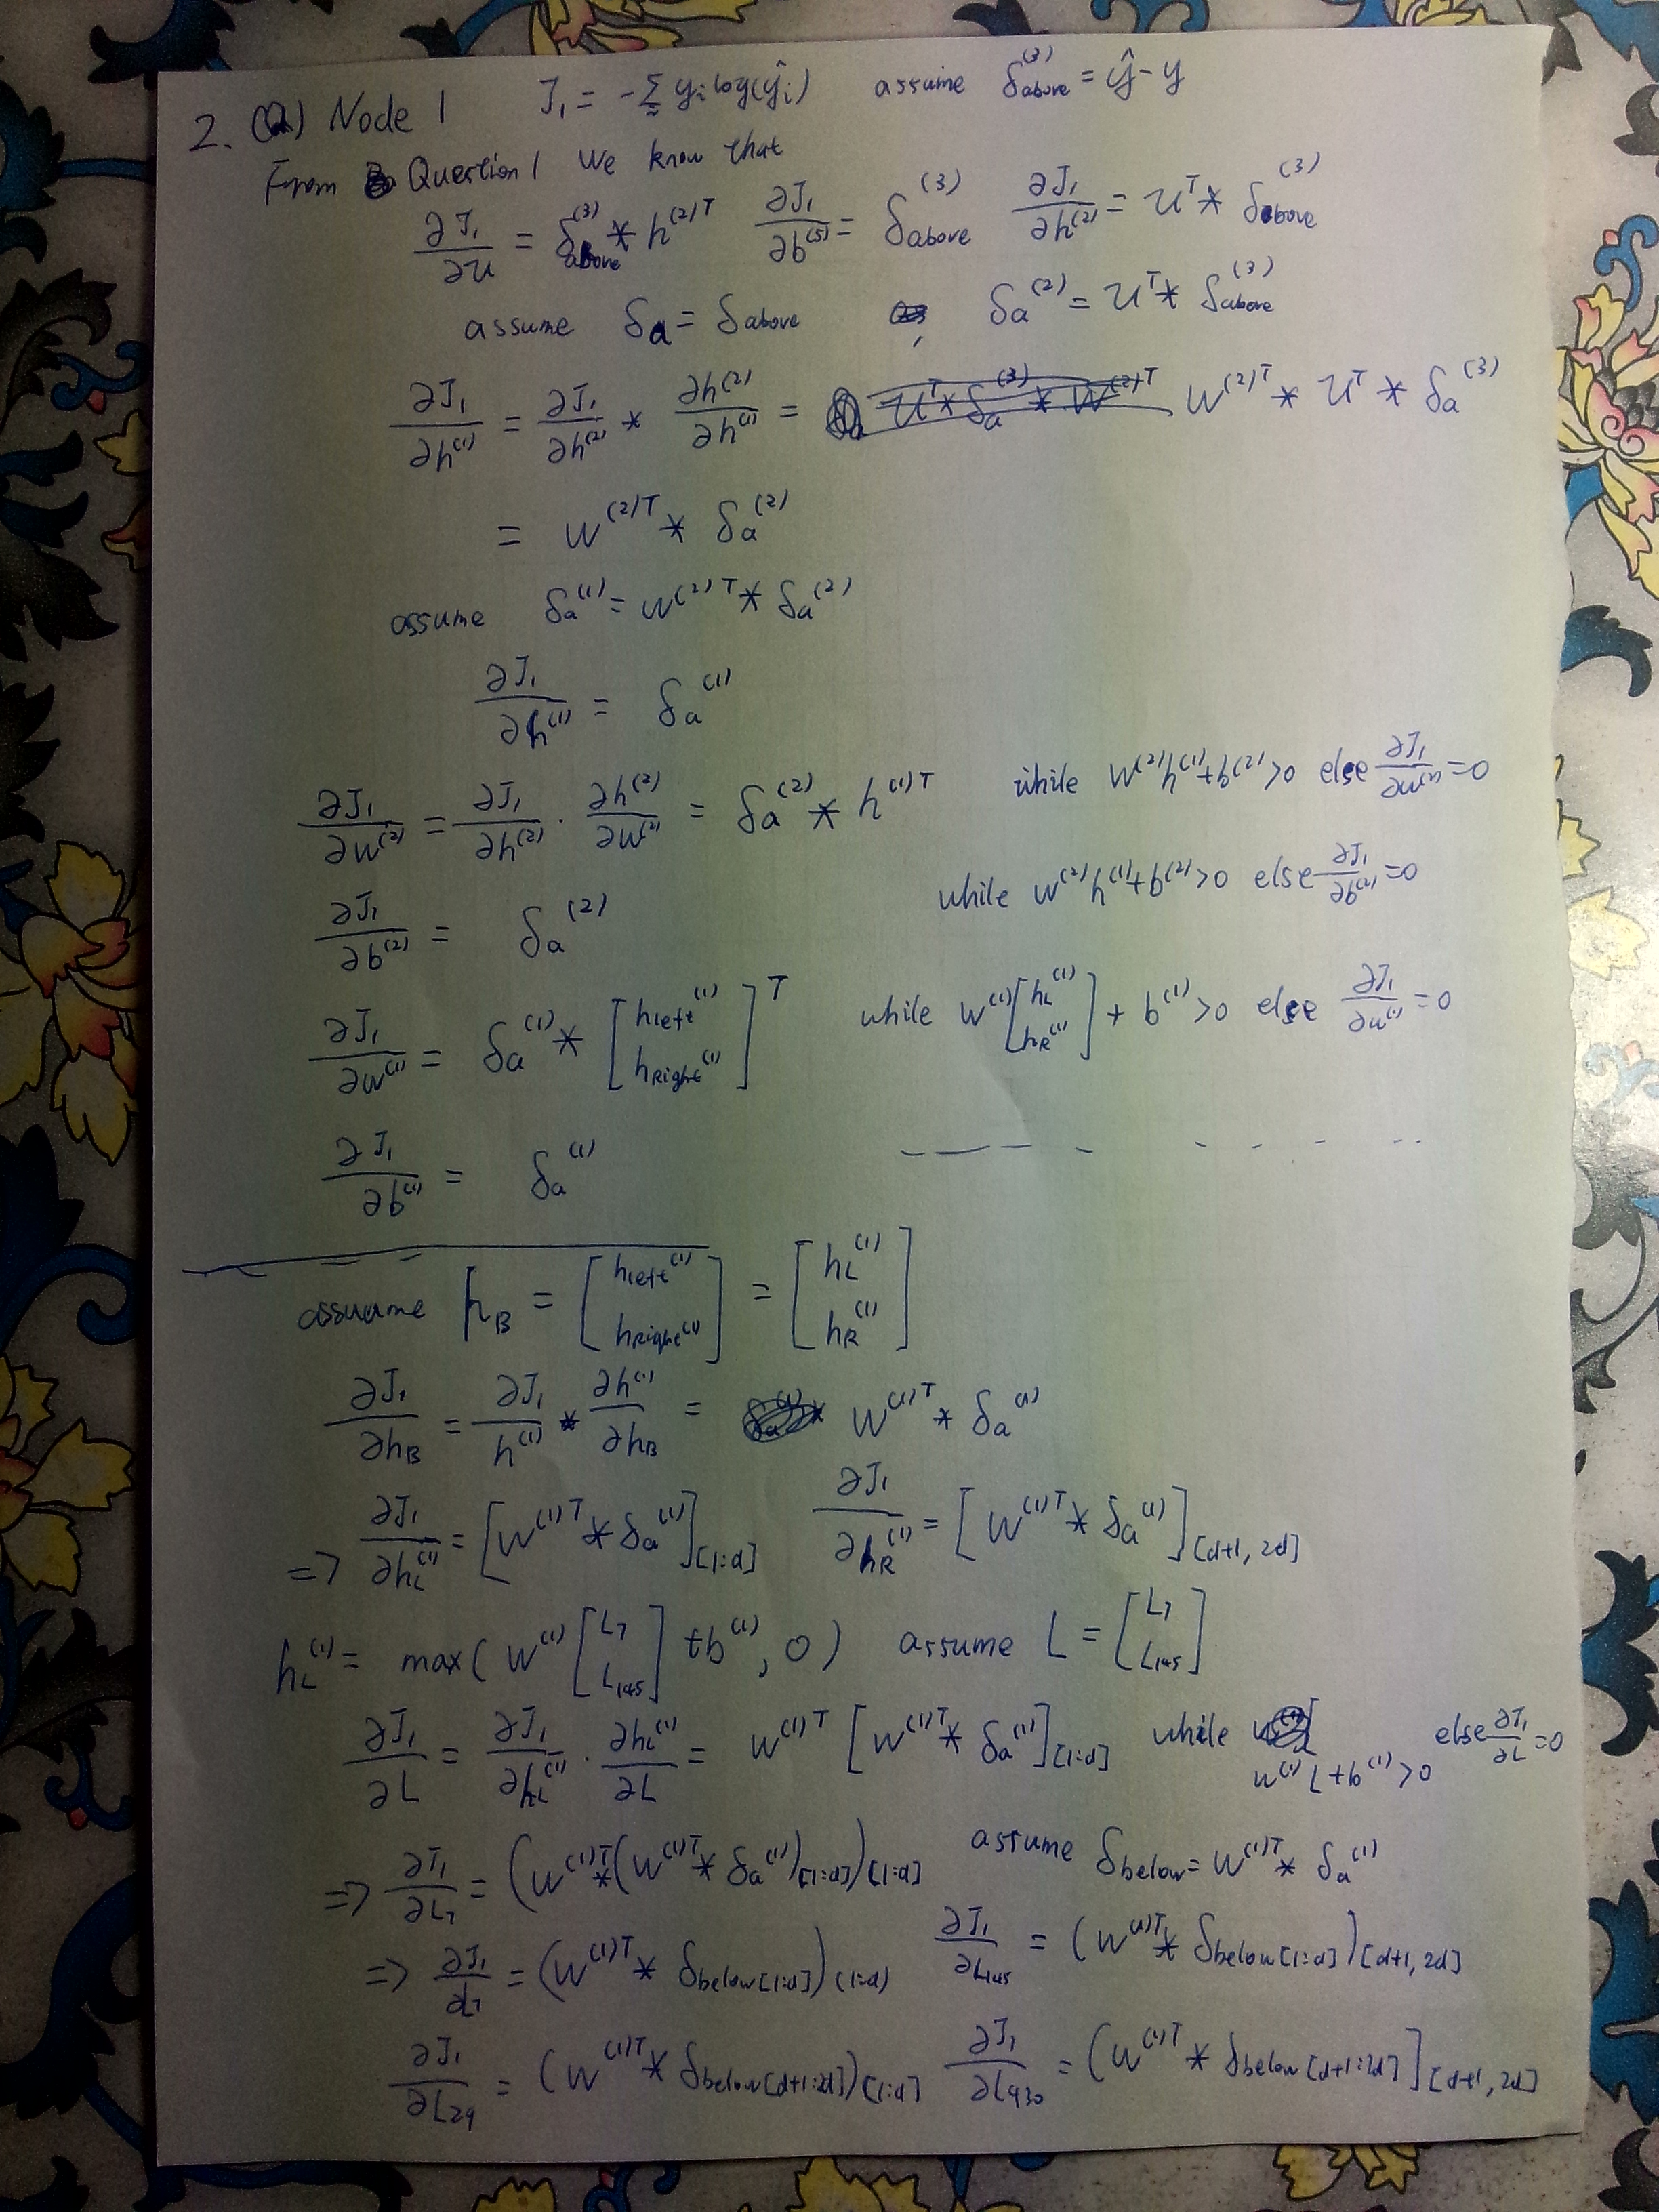 2. (a) Node 1 J₁ = -Σ yᵢ log(ŷᵢ) assume δ_above^(3) = ŷ - y
From Question 1 we know that
∂J₁/∂U = δ_above^(3) * h^(2)T ∂J₁/∂b^(s) = δ_above^(3) ∂J₁/∂h^(2) = U^T * δ_above^(3)
assume δ_a = δ_above , δ_a^(2) = U^T * δ_above^(3)
∂J₁/∂h^(1) = ∂J₁/∂h^(2) * ∂h^(2)/∂h^(1) = W^(2)T * U^T * δ_a^(3)
= W^(2)T * δ_a^(2)
assume δ_a^(1) = W^(2)T * δ_a^(2)
∂J₁/∂h^(1) = δ_a^(1)
∂J₁/∂W^(2) = ∂J₁/∂h^(2) · ∂h^(2)/∂W^(2) = δ_a^(2) * h^(1)T while W^(2)h^(1)+b^(2)>0 else ∂J₁/∂W^(2)=0
∂J₁/∂b^(2) = δ_a^(2) while W^(2)h^(1)+b^(2)>0 else ∂J₁/∂b^(2)=0
∂J₁/∂W^(1) = δ_a^(1) * [h_left^(1) h_Right^(1)]^T while W^(1)[h_L^(1) h_R^(1)] + b^(1)>0 else ∂J₁/∂W^(1)=0
∂J₁/∂b^(1) = δ_a^(1) — — — - - - - ..
assuame h_B = [h_left^(1) h_Right^(1)] = [h_L^(1) h_R^(1)]
∂J₁/∂h_B = ∂J₁/h^(1) * ∂h^(1)/∂h_B = W^(1)T * δ_a^(1)
=> ∂J₁/∂h_L^(1) = [W^(1)T * δ_a^(1)]_[1:d] ∂J₁/∂h_R^(1) = [W^(1)T * δ_a^(1)]_[d+1, 2d]
h_L^(1) = max(W^(1)[L₇ L₁₄₅] + b^(1), 0) assume L = [L₇ L₁₄₅]
∂J₁/∂L = ∂J₁/∂h_L^(1) · ∂h_L^(1)/∂L = W^(1)T [W^(1)T * δ_a^(1)]_[1:d] while W^(1)L+b^(1)>0 else ∂J₁/∂L=0
=> ∂J₁/∂L₇ = (W^(1)T*(W^(1)T * δ_a^(1))_[1:d])_[1:d] assume δ_below = W^(1)T * δ_a^(1)
=> ∂J₁/∂₇ = (W^(1)T * δ_below[1:d])_(1:d) ∂J₁/∂L₁₄₅ = (W^(1)T * δ_below[1:d])_[d+1, 2d]
∂J₁/∂L₂₉ = (W^(1)T * δ_below[d+1:2d])_[1:d] ∂J₁/∂L₄₃₀ = (W^(1)T * δ_below[d+1:2d]]_[d+1, 2d]